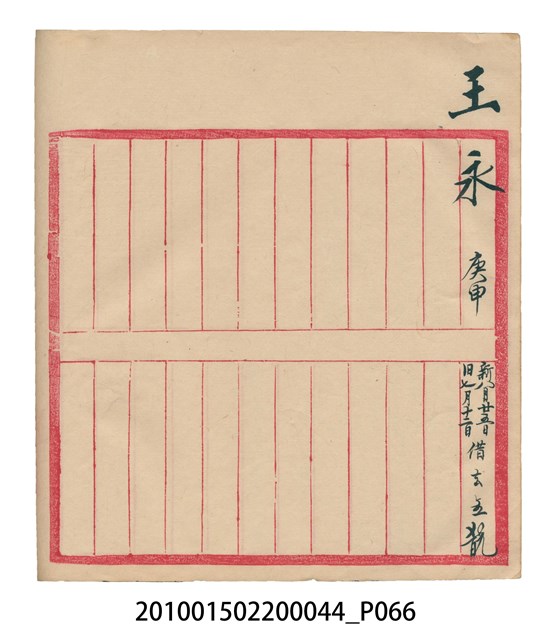 王永 庚申
新八月廿五日
旧七月十二日
借去
201001502200044_P066